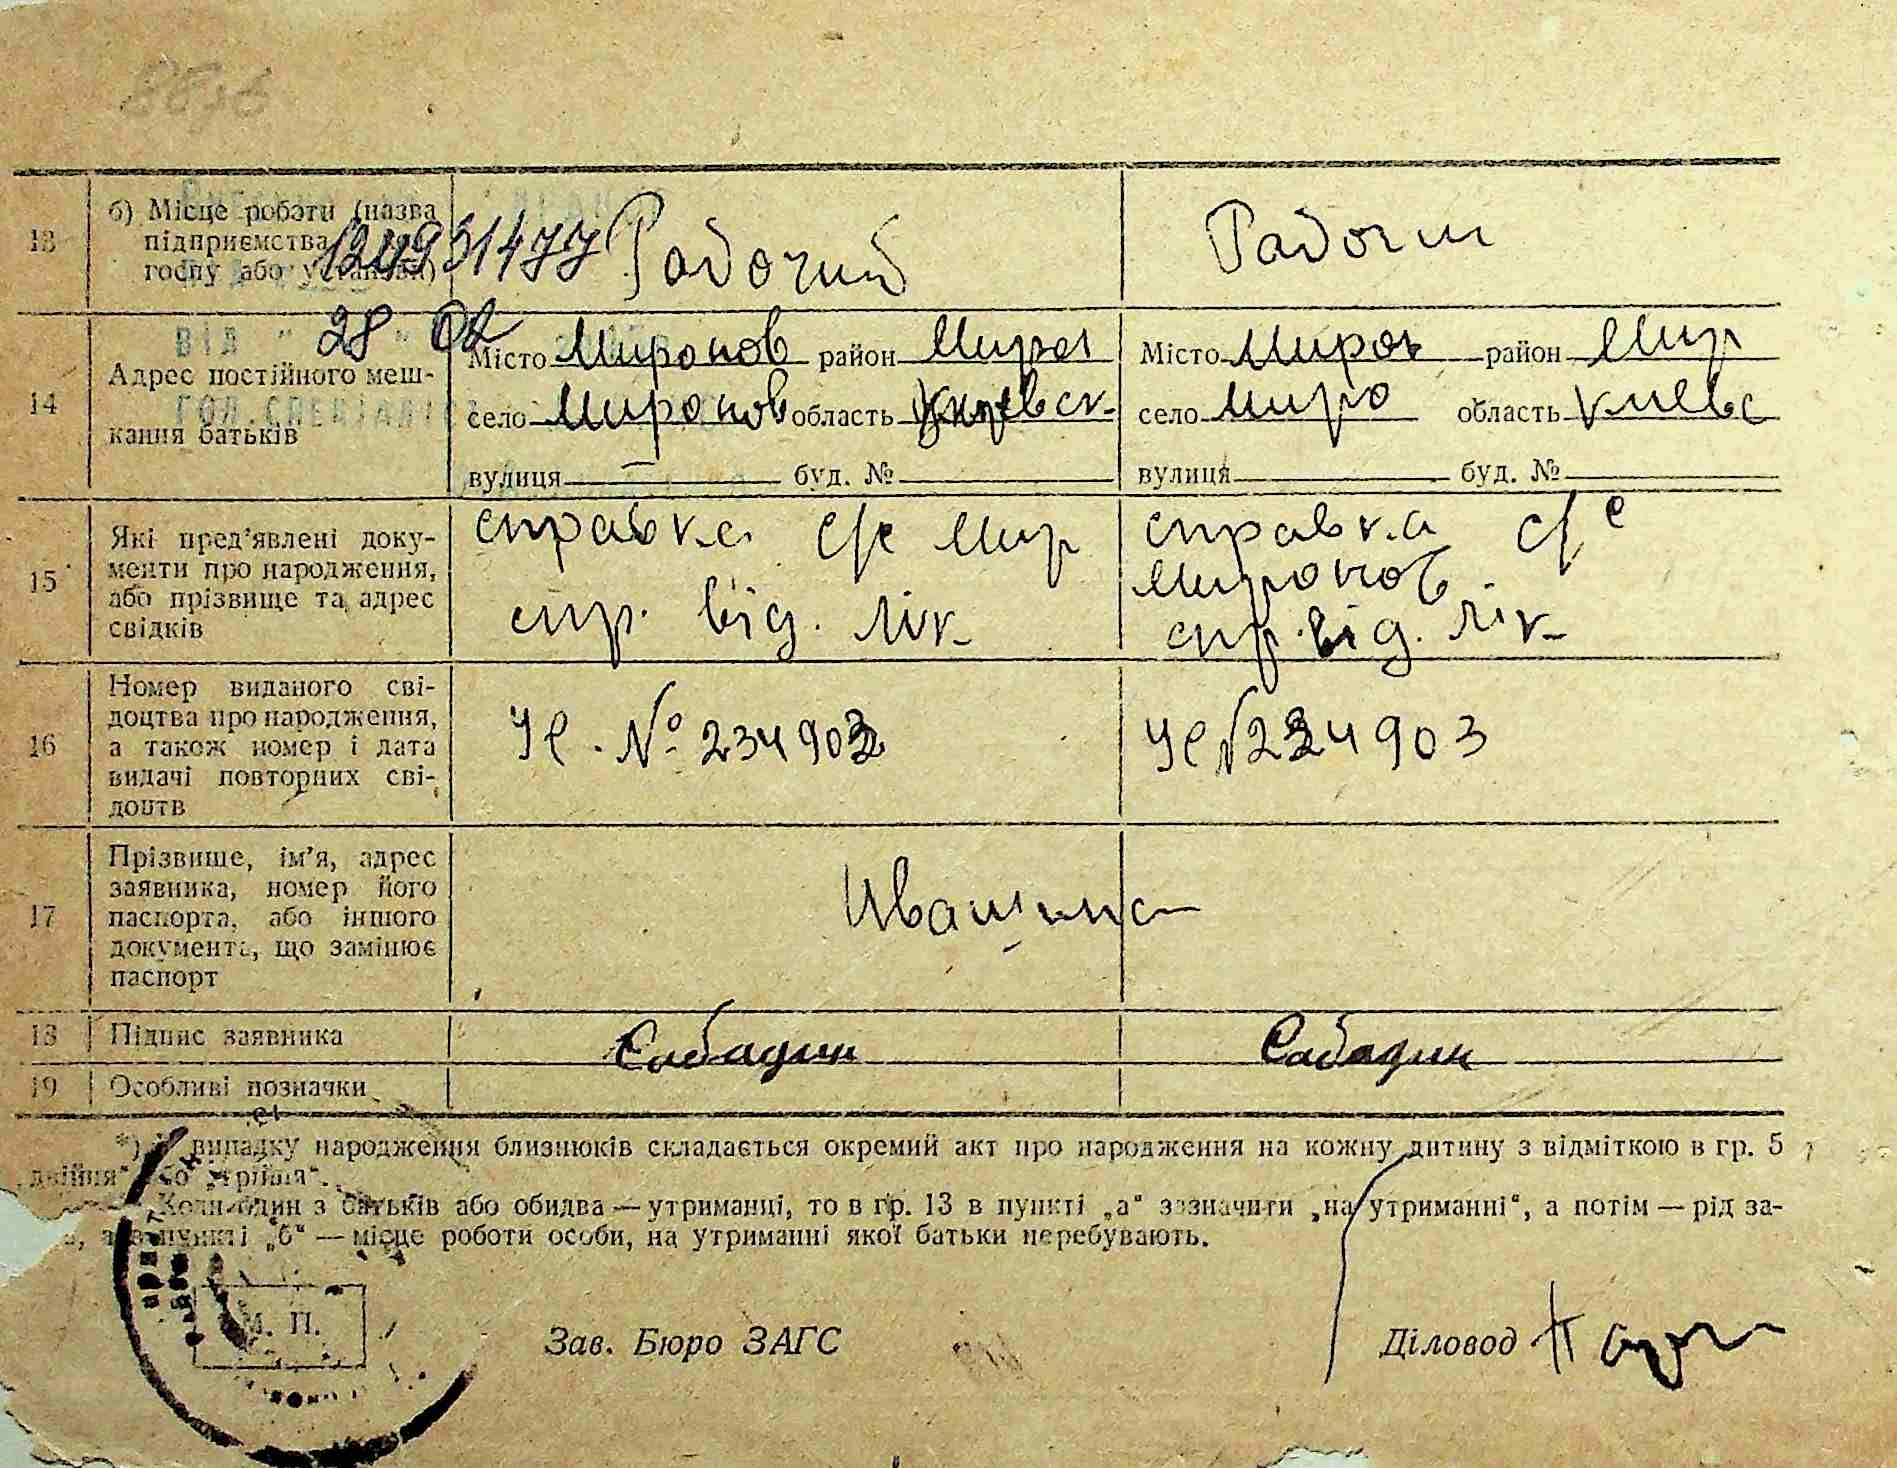 13 б) Місце роботи (назва
підприємства
госпу або установи)
12493147 7 Рабочий Рабочий
від " 28 " 02
14 Адрес постійного меш-
кання батьків
Місто Миронов район Мирон Місто Мирон район Мир
село Миронов область Киевск. село Миро область Киевс
вулиця — буд. № вулиця буд. №
15 Які пред'явлені доку-
менти про народження,
або прізвище та адрес
свідків
справка с/с Мир справка с/с
Миронов.
спр. від. лік. спр. від. лік.
16 Номер виданого сві-
доцтва про народження,
а також номер і дата
видачі повторних сві-
доцтв
УС. № 234903 УС № 234903
17 Прізвище, ім'я, адрес
заявника, номер його
паспорта, або іншого
документа, що замінює
паспорт
18 Підпис заявника Сабадин Сабадин
19 Особливі позначки
*) У випадку народження близнюків складається окремий акт про народження на кожну дитину з відміткою в гр. 5
„двійня" або „трійня".
Коли один з батьків або обидва — утриманці, то в гр. 13 в пункті „а" зазначити „на утриманні", а потім — рід за-
в пункті „б" — місце роботи особи, на утриманні якої батьки перебувають.
М. П.
Зав. Бюро ЗАГС Діловод